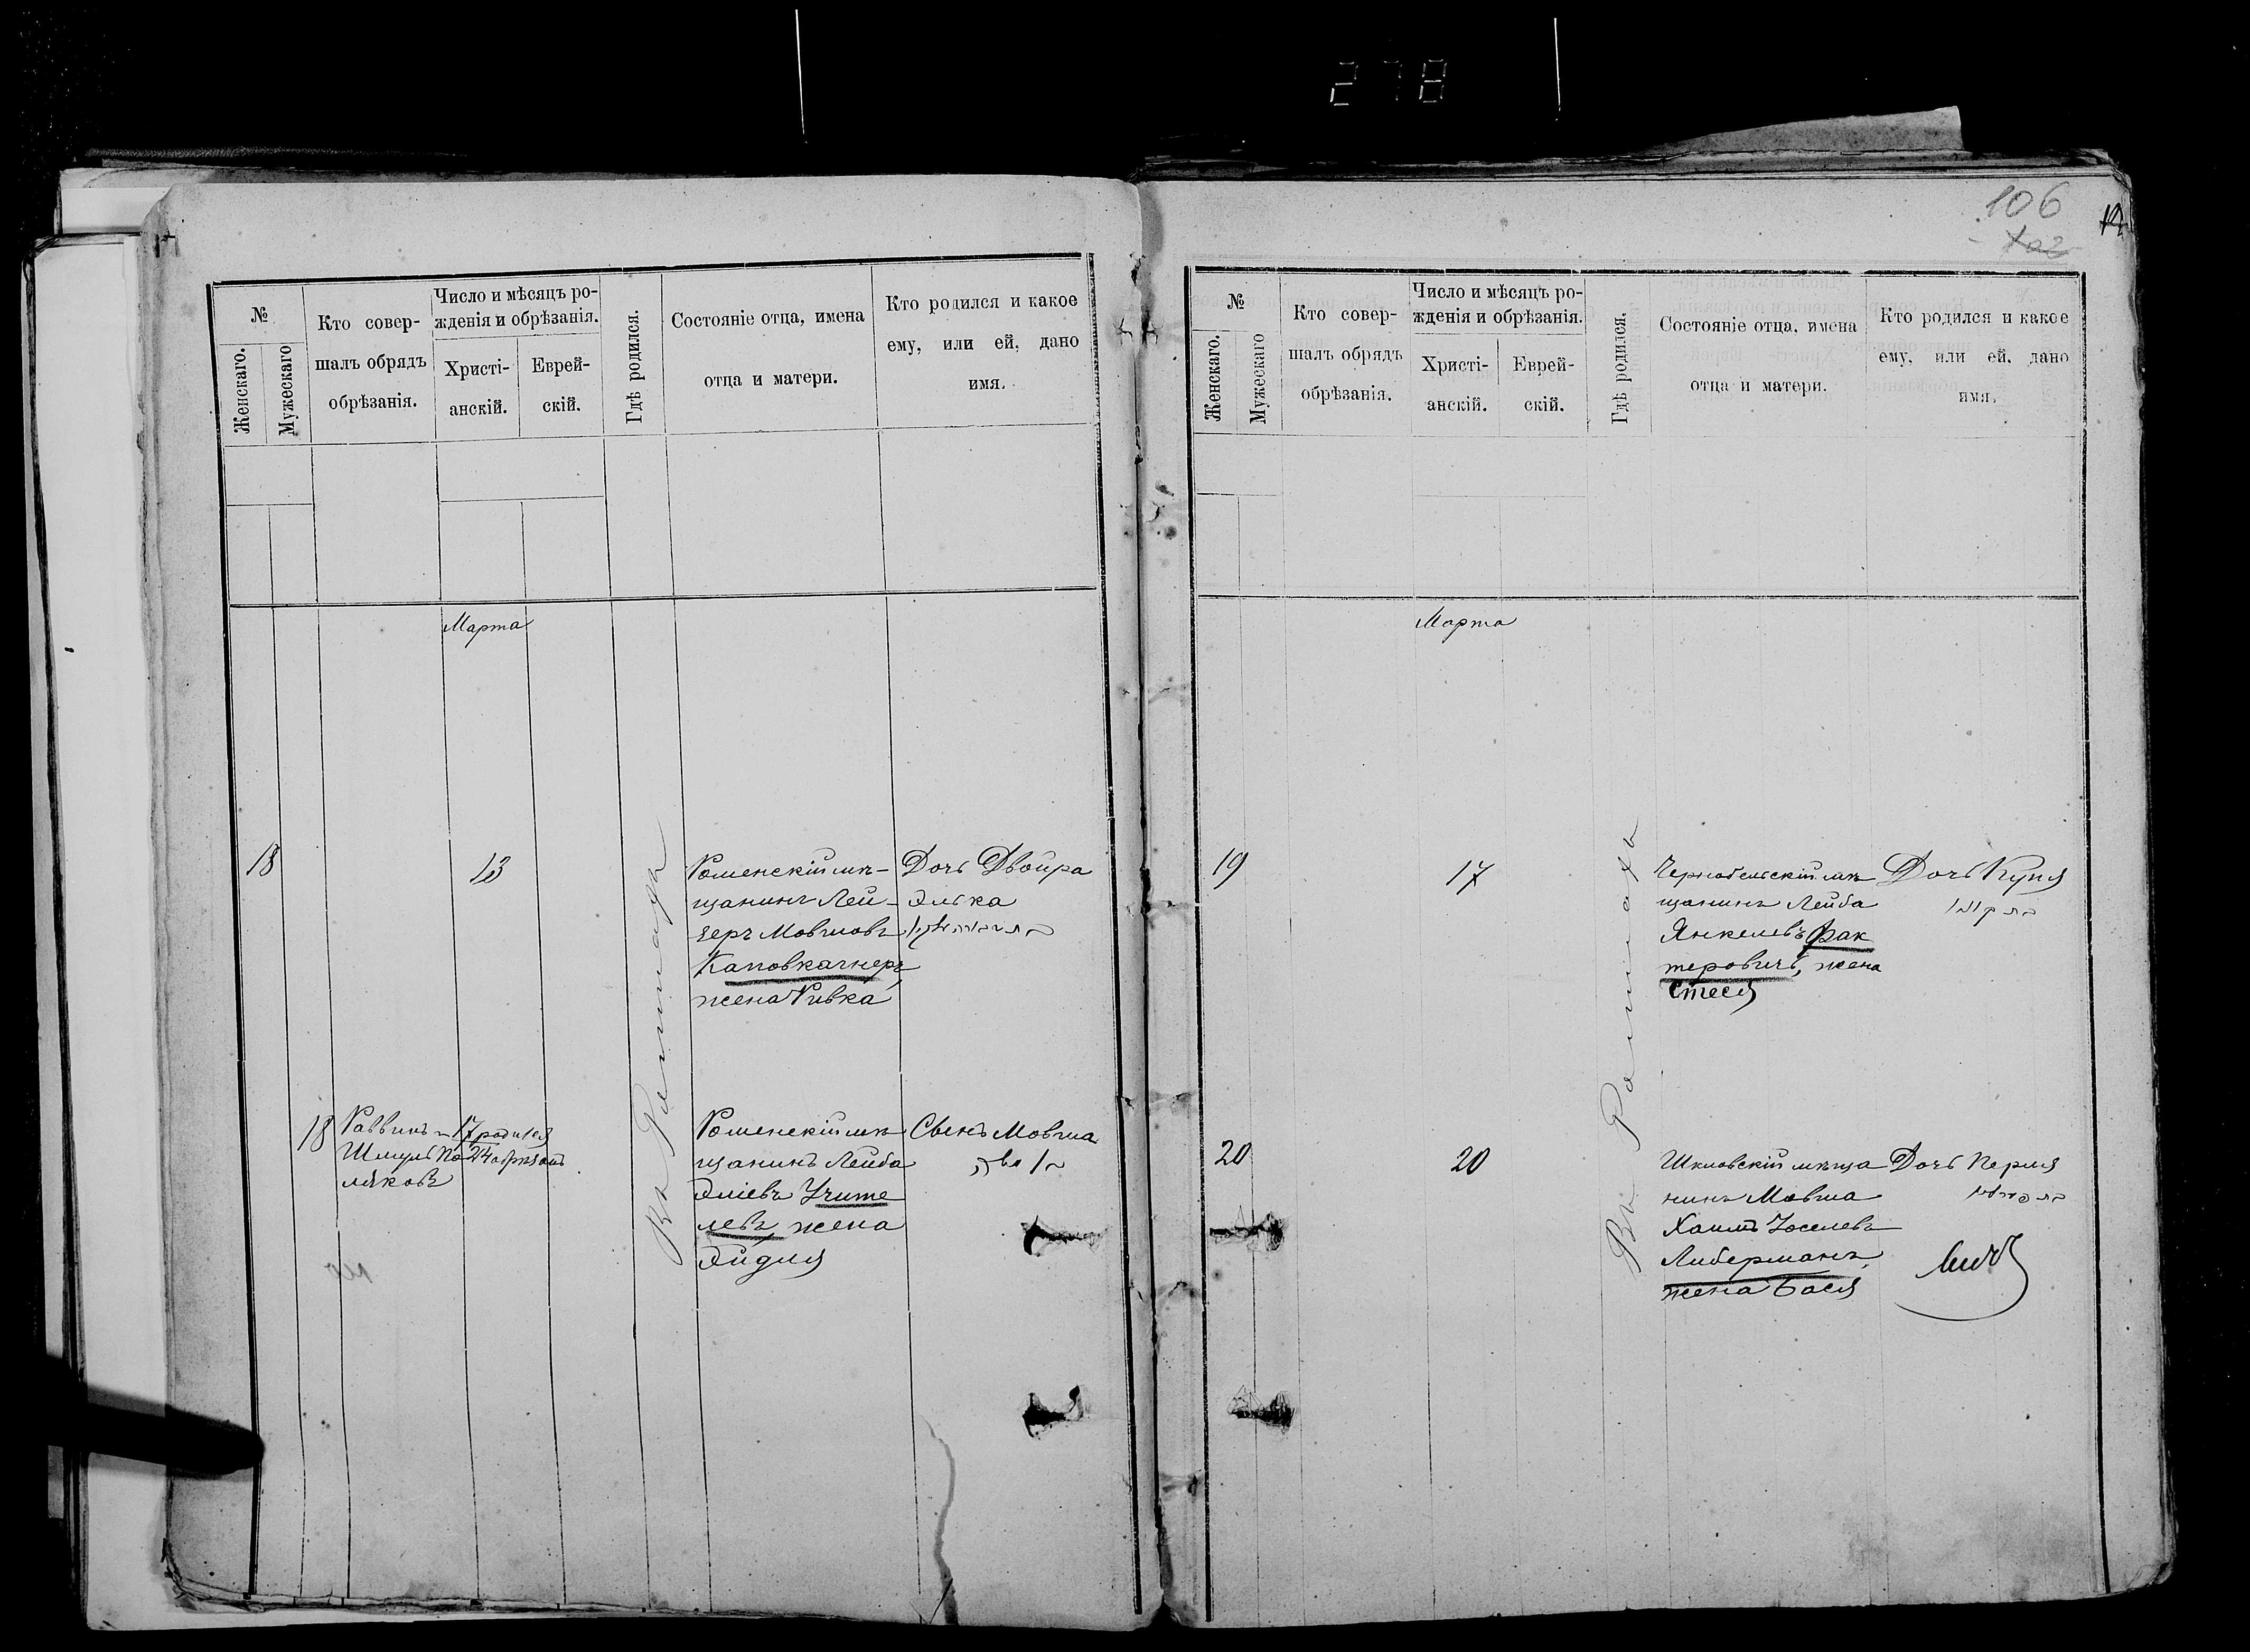 278
106
102
№
Женскаго.
Мужескаго
Кто совер-
шалъ обрядъ
обрѣзанія.
Число и мѣсяцъ ро-
жденія и обрѣзанія.
Христі-
анскій.
Еврей-
скій.
Гдѣ родился.
Состояніе отца, имена
отца и матери.
Кто родился и какое
ему, или ей, дано
имя.
Марта
18
13
Въ Ромнахъ
Роменскій мѣ-
щанинъ Лей-
зеръ Мовшовъ
Каповкачнеръ,
жена Ривка
Дочь Двойра
Элька
18
Раввинъ
Шмуль По
ляковъ
17 родился
24 обрѣзанъ
Роменскій мѣ
щанинъ Лейба
Эліевъ Учите
левъ, жена
Эйдля
Сынъ Мовша
משה
№
Женскаго.
Мужескаго
Кто совер-
шалъ обрядъ
обрѣзанія.
Число и мѣсяцъ ро-
жденія и обрѣзанія.
Христі-
анскій.
Еврей-
скій.
Гдѣ родился.
Состояніе отца, имена
отца и матери.
Кто родился и какое
ему, или ей, дано
имя.
Марта
19
17
Въ Ромнахъ
Чернобельскій мѣ
щанинъ Лейба
Янкелевъ Фак
теровичъ, жена
Стеся
Дочь Куня
20
20
Шкловскій мѣща
нинъ Мовша
Хаимъ Іоселевъ
Либерманъ,
жена Бася
Дочь Перля